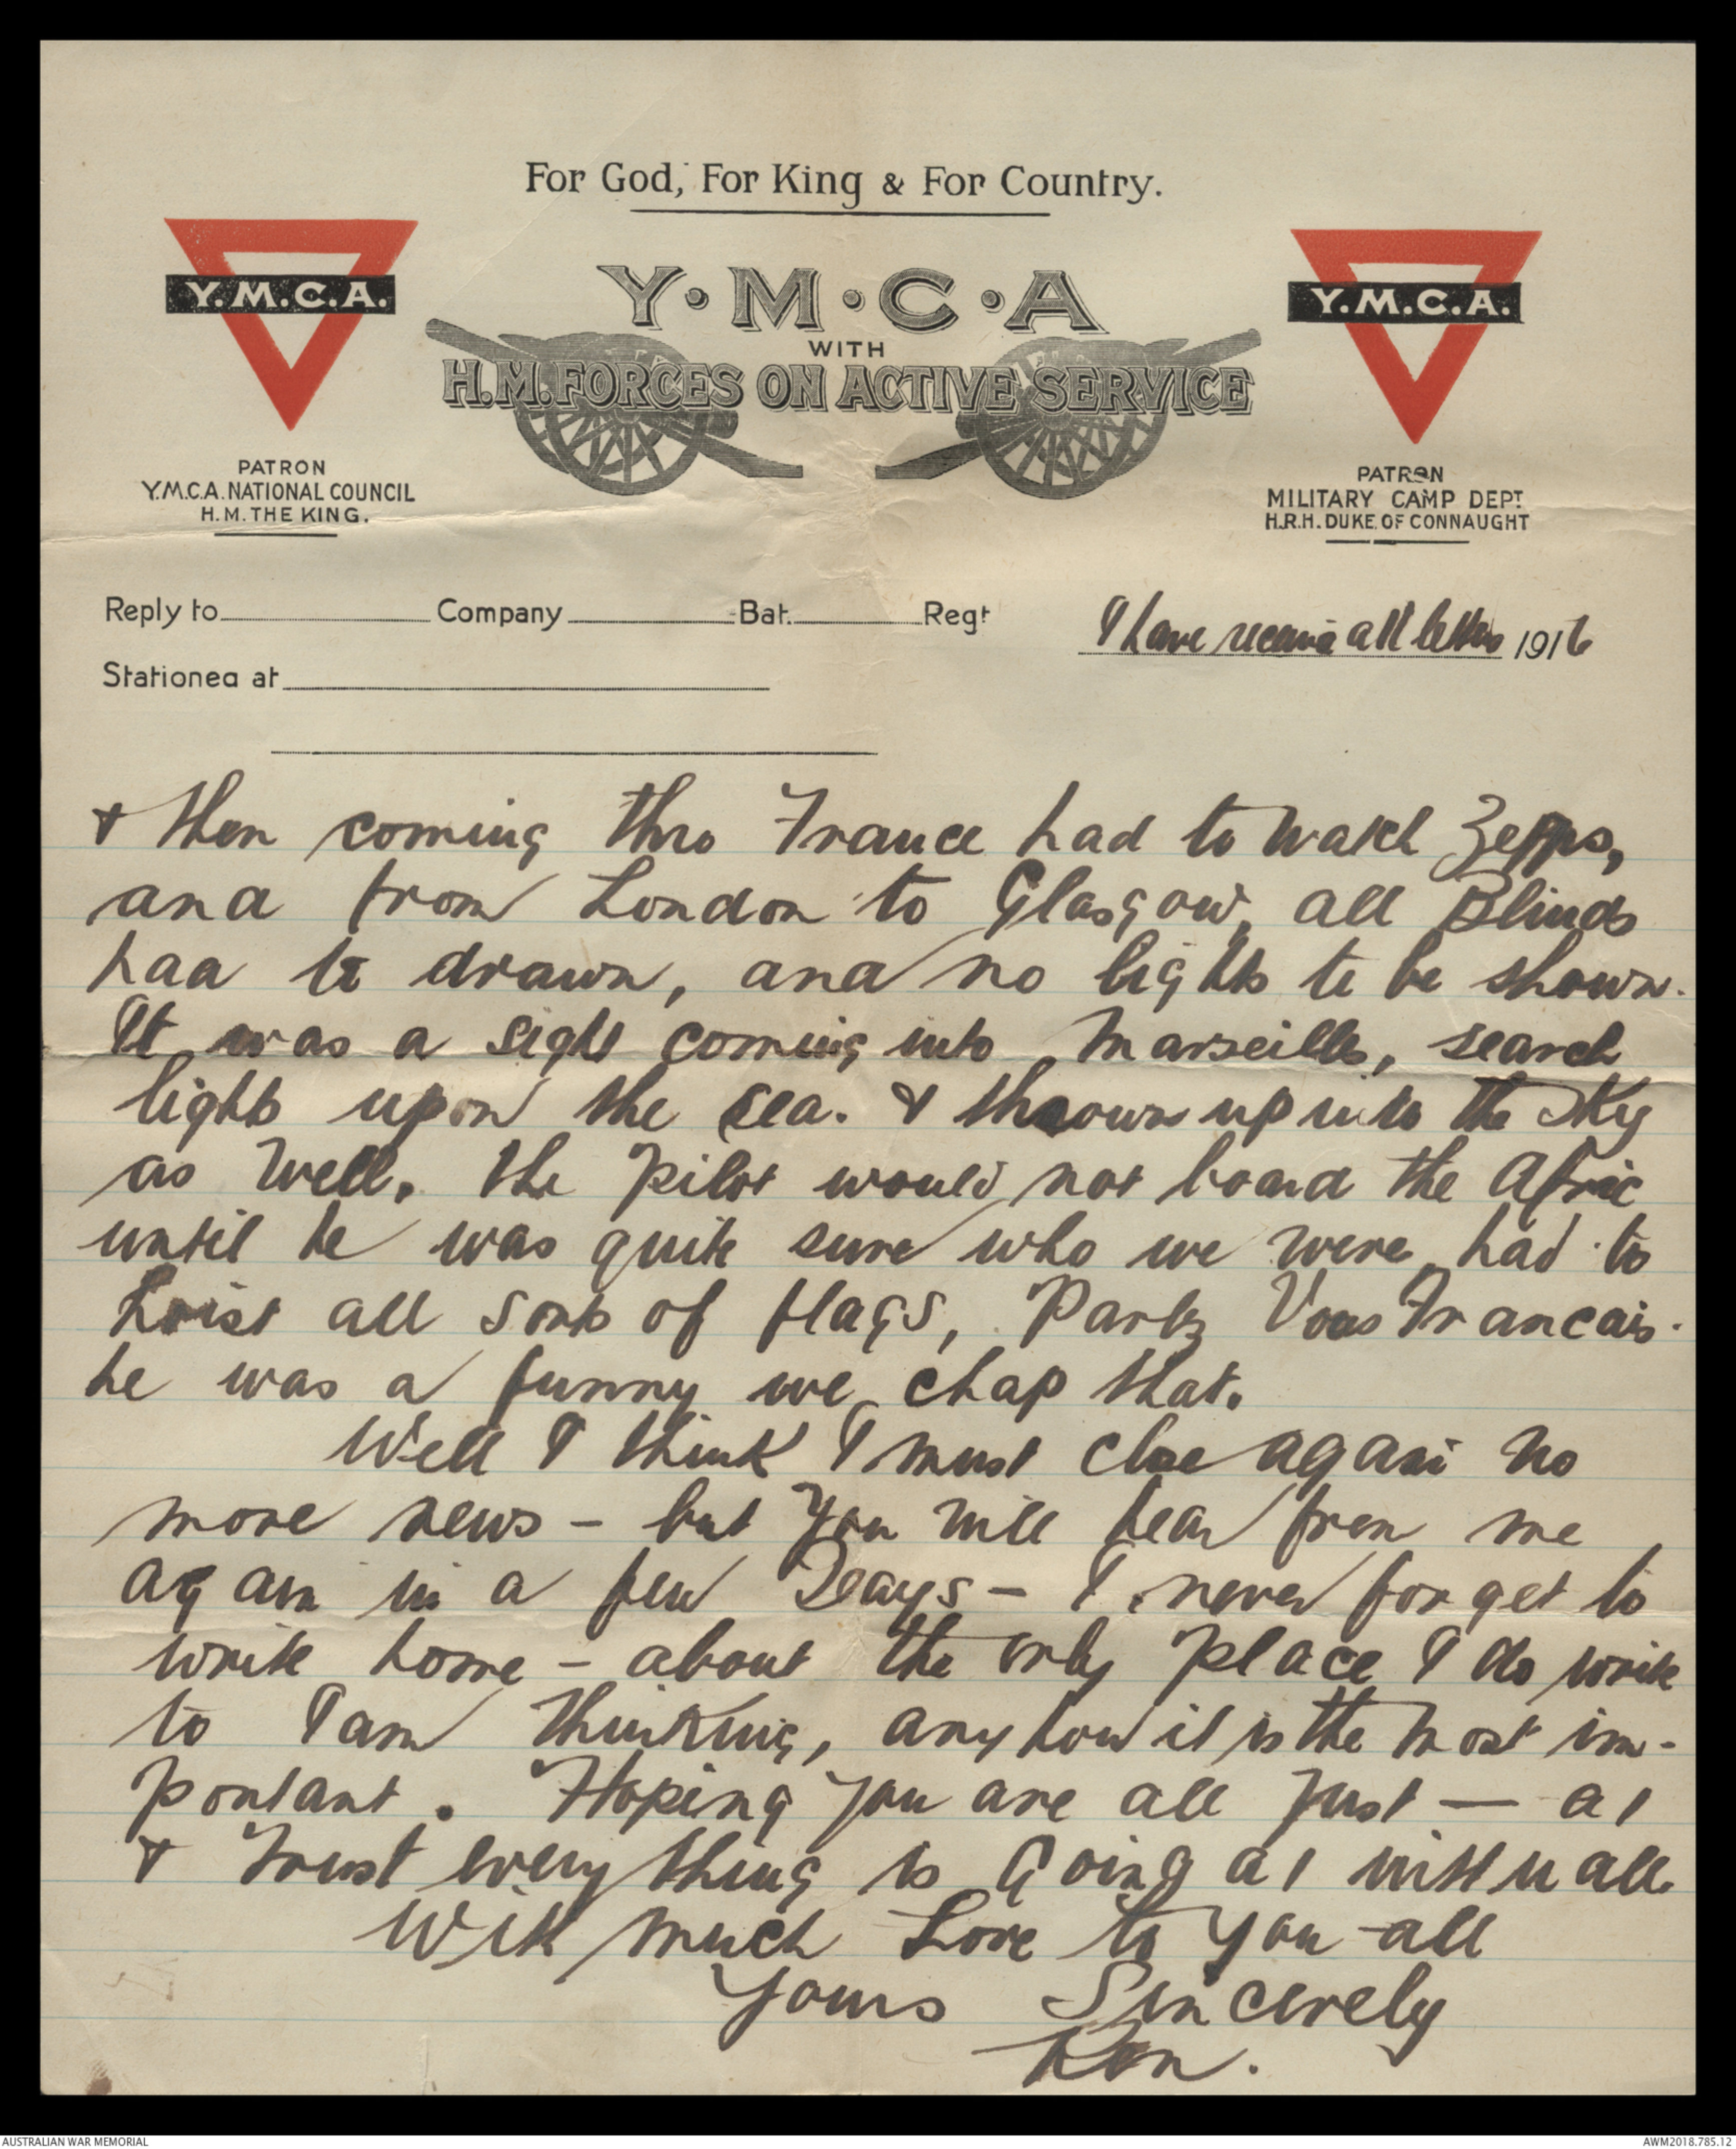 For God, For King & For Country.
Y.M.C.A.
Y·M·C·A
WITH
H.M. FORCES ON ACTIVE SERVICE
Y.M.C.A.
PATRON
Y.M.C.A. NATIONAL COUNCIL
H.M. THE KING.
PATRON
MILITARY CAMP DEPT.
H.R.H. DUKE OF CONNAUGHT
Reply to Company Bat. Regt
I have receive all letters 1916
Stationed at
& then coming thro France had to watch Zepps,
and from London to Glasgow, all Blinds
had to drawn, and no lights to be shown.
It was a sight coming into Marseilles, search
lights upon the sea. & thrown up into the sky
as well. The pilot would not board the Afric
until he was quite sure who we were, had to
hoist all sorts of flags, Parlez Vous Francais.
he was a funny we chap that.
Well I think I must close again no
more news - but you will hear from me
again in a few Days - I never forget to
write home - about the only place I do write
to I am thinking, anyhow it is the most im-
portant. Hoping you are all just — a1
& trust everything is going a1 with u all.
With much Love to you all
Yours Sincerely
Ken.
AUSTRALIAN WAR MEMORIAL
AWM2018.785.12